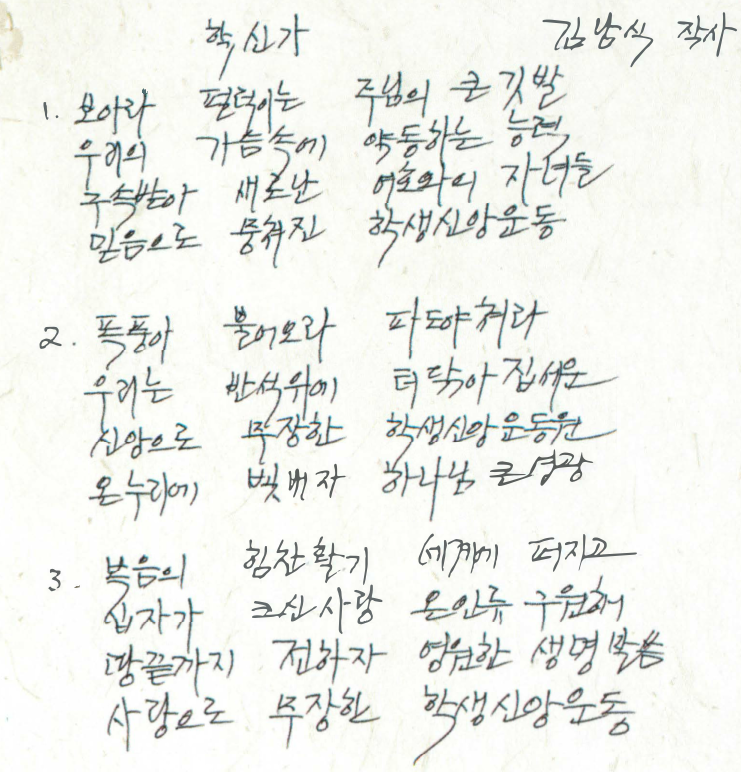 학,신가 김남식 작사
1. 보아라 펄럭이는 주님의 큰 깃발
우리의 가슴속에 약동하는 능력
구속받아 새로난 여호와의 자녀들
믿음으로 뭉쳐진 학생신앙운동
2. 폭풍아 불어오라 파도야 쳐라
우리는 반석위에 터닦아 집세운
신앙으로 무장한 학생신앙운동원
온누리에 빛내자 하나님 큰영광
3. 복음의 힘찬활기 세계에 퍼지고
십자가 크신사랑 온인류 구원해
땅끝까지 전하자 영원한 생명복음
사랑으로 무장한 학생신앙운동